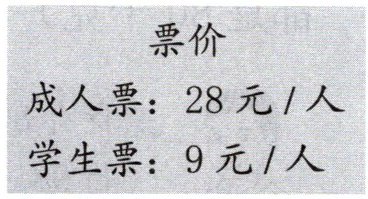 票价
成人票：28元/人
学生票：9元/人